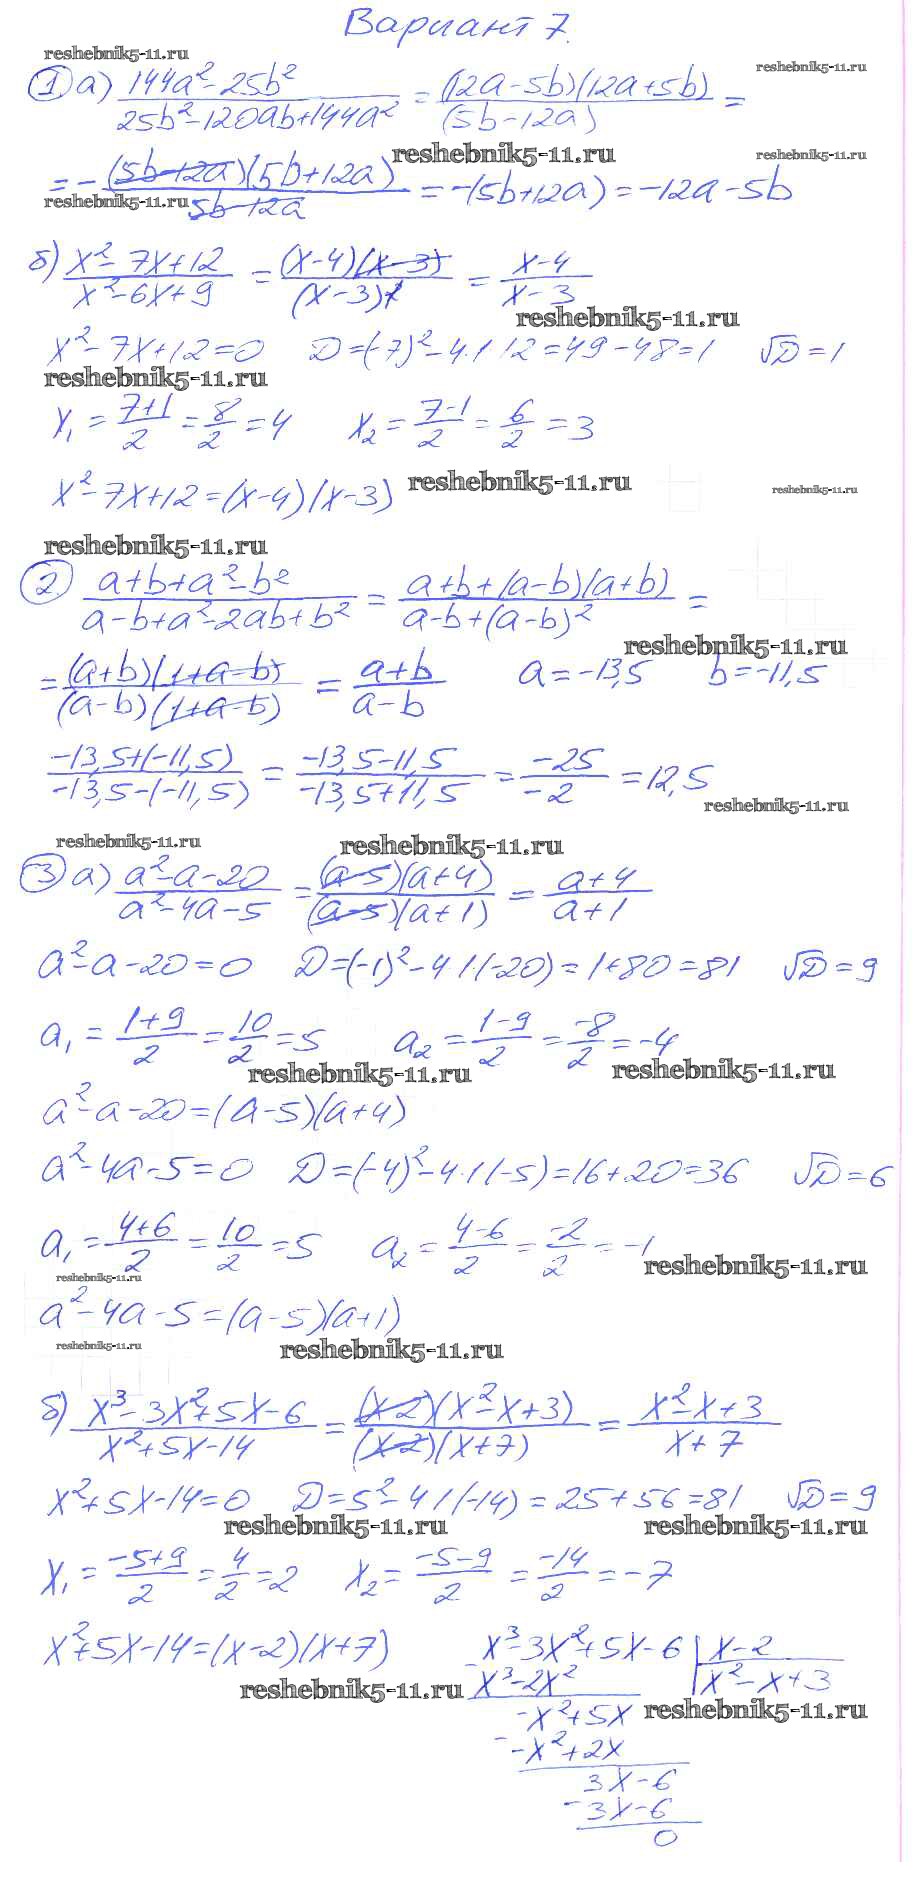 Вариант 7.
reshebnik5-11.ru
reshebnik5-11.ru
① а) (144a² - 25b²)/(25b² - 120ab + 144a²) = ((12a - 5b)(12a + 5b))/(5b - 12a) =
reshebnik5-11.ru
reshebnik5-11.ru
= -((5b - 12a)(5b + 12a))/(5b - 12a) = -(5b + 12a) = -12a - 5b
reshebnik5-11.ru
б) (x² - 7x + 12)/(x² - 6x + 9) = ((x - 4)(x - 3))/(x - 3)² = (x - 4)/(x - 3)
reshebnik5-11.ru
x² - 7x + 12 = 0 D = (-7)² - 4·1·12 = 49 - 48 = 1 √D = 1
reshebnik5-11.ru
x₁ = (7+1)/2 = 8/2 = 4 x₂ = (7-1)/2 = 6/2 = 3
x² - 7x + 12 = (x - 4)(x - 3)
reshebnik5-11.ru
reshebnik5-11.ru
reshebnik5-11.ru
② (a + b + a² - b²)/(a - b + a² - 2ab + b²) = (a + b + (a - b)(a + b))/(a - b + (a - b)²) =
reshebnik5-11.ru
= ((a + b)(1 + a - b))/((a - b)(1 + a - b)) = (a + b)/(a - b) a = -13,5 b = -11,5
(-13,5 + (-11,5))/(-13,5 - (-11,5)) = (-13,5 - 11,5)/(-13,5 + 11,5) = -25/-2 = 12,5
reshebnik5-11.ru
reshebnik5-11.ru
reshebnik5-11.ru
③ а) (a² - a - 20)/(a² - 4a - 5) = ((a - 5)(a + 4))/((a - 5)(a + 1)) = (a + 4)/(a + 1)
a² - a - 20 = 0 D = (-1)² - 4·1·(-20) = 1 + 80 = 81 √D = 9
a₁ = (1+9)/2 = 10/2 = 5 a₂ = (1-9)/2 = -8/2 = -4
reshebnik5-11.ru
reshebnik5-11.ru
a² - a - 20 = (a - 5)(a + 4)
a² - 4a - 5 = 0 D = (-4)² - 4·1·(-5) = 16 + 20 = 36 √D = 6
a₁ = (4+6)/2 = 10/2 = 5 a₂ = (4-6)/2 = -2/2 = -1
reshebnik5-11.ru
reshebnik5-11.ru
a² - 4a - 5 = (a - 5)(a + 1)
reshebnik5-11.ru
reshebnik5-11.ru
б) (x³ - 3x² + 5x - 6)/(x² + 5x - 14) = ((x - 2)(x² - x + 3))/((x - 2)(x + 7)) = (x² - x + 3)/(x + 7)
x² + 5x - 14 = 0 D = 5² - 4·1·(-14) = 25 + 56 = 81 √D = 9
reshebnik5-11.ru
reshebnik5-11.ru
x₁ = (-5+9)/2 = 4/2 = 2 x₂ = (-5-9)/2 = -14/2 = -7
x² + 5x - 14 = (x - 2)(x + 7)
x³ - 3x² + 5x - 6 | x - 2
x³ - 2x² | x² - x + 3
reshebnik5-11.ru
reshebnik5-11.ru
-x² + 5x
-x² + 2x
3x - 6
3x - 6
0